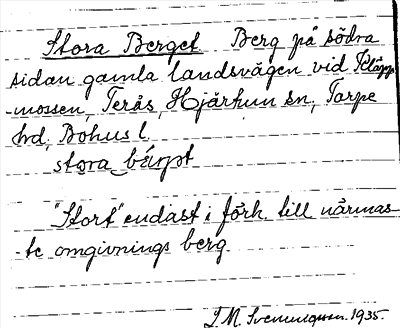 Stora Berget. Berg på södra
sidan gamla landsvägen vid Släpp
-mossen, Terås, Hjärtum sn, Torpe
hd, Bohus l.
stora bärjet
"Stort" endast i förh. till närmas-
-te omgivnings berg.
1935.